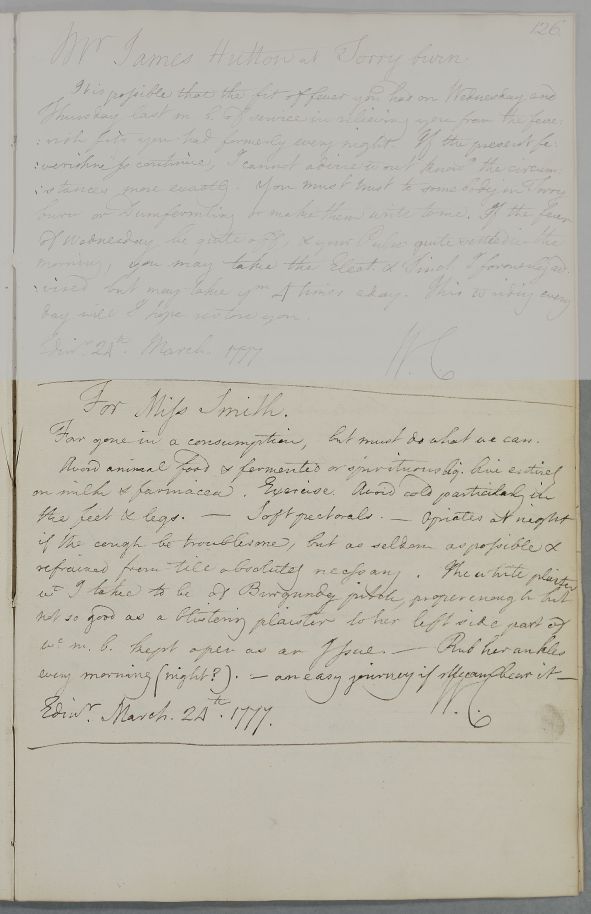 126
Mr. James Hutton at Torry burn
It is possible that the fit of fever you had on Wednesday and
Thursday last m. b. of service in relieving you from the feve:
:rish fits you had formerly every night. If the present fe:
:verishness continue, I cannot advise wout knowg the circum:
:stances more exactly. You must trust to some body in Torry
burn or Dumfermling or make them write to me. If the fever
of Wednesday be quite off, & your Pulse quite settled in the
morning, you may take the Elect. & Tinct. I formerly ad:
:vised but may take ym 4 times a day. This w riding every
day will I hope restore you.
Edinr. 24th. March. 1777
W. C
For Miss Smith.
Far gone in a consumption, but must do what we can.
Avoid animal food & fermented or spirituous liq. live entirel
on milk & farinacea. Exercise. Avoid cold particularly in
the feet & legs. — Soft pectorals. — Opiates at night
if the cough be troublesome, but as seldom as possible &
refrained from till absolutely necessary. The white plaister
wc I take to be of Burgundy pitch, proper enough but
not so good as a blistering plaister to her left side part of
wc m. b. kept open as an Issue. — Rub her ankles
every morning (night?). — an easy journey if she can bear it —
Edinr. March. 24th. 1777.
W. C.